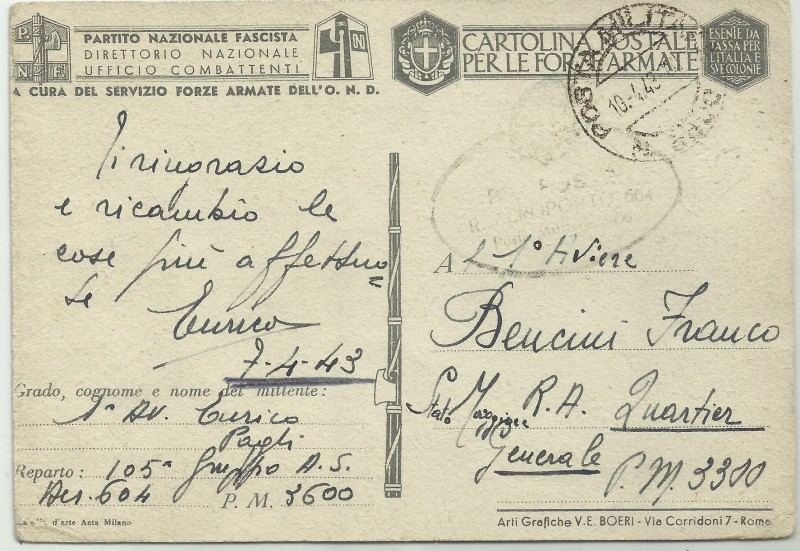 P. N. F.
PARTITO NAZIONALE FASCISTA
DIRETTORIO NAZIONALE
UFFICIO COMBATTENTI
A CURA DEL SERVIZIO FORZE ARMATE DELL'O. N. D.
CARTOLINA POSTALE
PER LE FORZE ARMATE
ESENTE DA
TASSA PER
L'ITALIA E
SVE COLONIE
POSTA MILITARE
10.4.43
Ti ringrazio
e ricambio le
cose più affettuo
se
Enrico
7-4-43
Grado, cognome e nome del mittente:
1° Av. Enrico
Pagli
Reparto: 105° Gruppo A. S.
Aer. 604 P. M. 3600
d'arte Acta Milano
604
A 1° Aviere
Bencini Franco
Stato Maggiore R. A. Quartier
Generale P.M. 3300
Arti Grafiche V. E. BOERI - Via Corridoni 7 - Roma